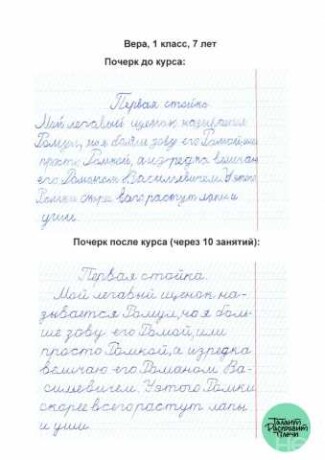 Вера, 1 класс, 7 лет
Почерк до курса:
Первая стойка
Мой легавый щенок называется
Ромул, но я больше зову его Ромой, или
просто Ромкой, а изредка величаю
его Романом Васильевичем. У этого
Ромки скорее всего растут лапы и
уши.
Почерк после курса (через 10 занятий):
Первая стойка.
Мой легавый щенок на-
зывается Ромул, но я боль-
ше зову его Ромой, или
просто Ромкой, а изредка
величаю его Романом Ва-
сильевичем. У этого Ромки
скорее всего растут лапы
и уши.